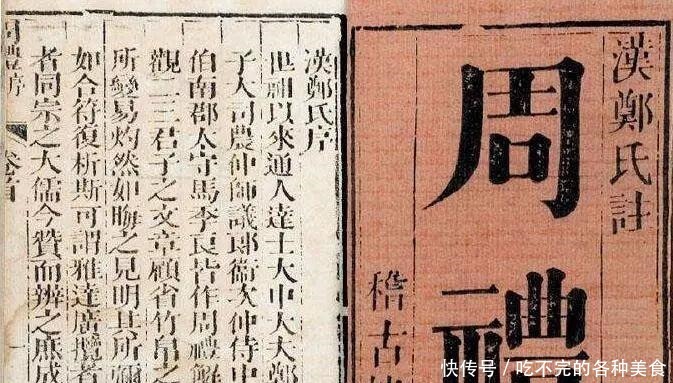 漢鄭氏註
周禮
稽古
漢鄭氏序
世祖以來通人達士大中大夫鄭
子大司農仲師議郎衛次仲侍中
伯南郡太守馬季良皆作周禮解
觀二三君子之文章顧省竹帛之
所變易灼然如晦之見明其所彌
如合符復析斯可謂雅達廣攬者
者同宗之大儒今贊而辨之庶成
周禮序 卷首
快传号/吃不完的各种美食